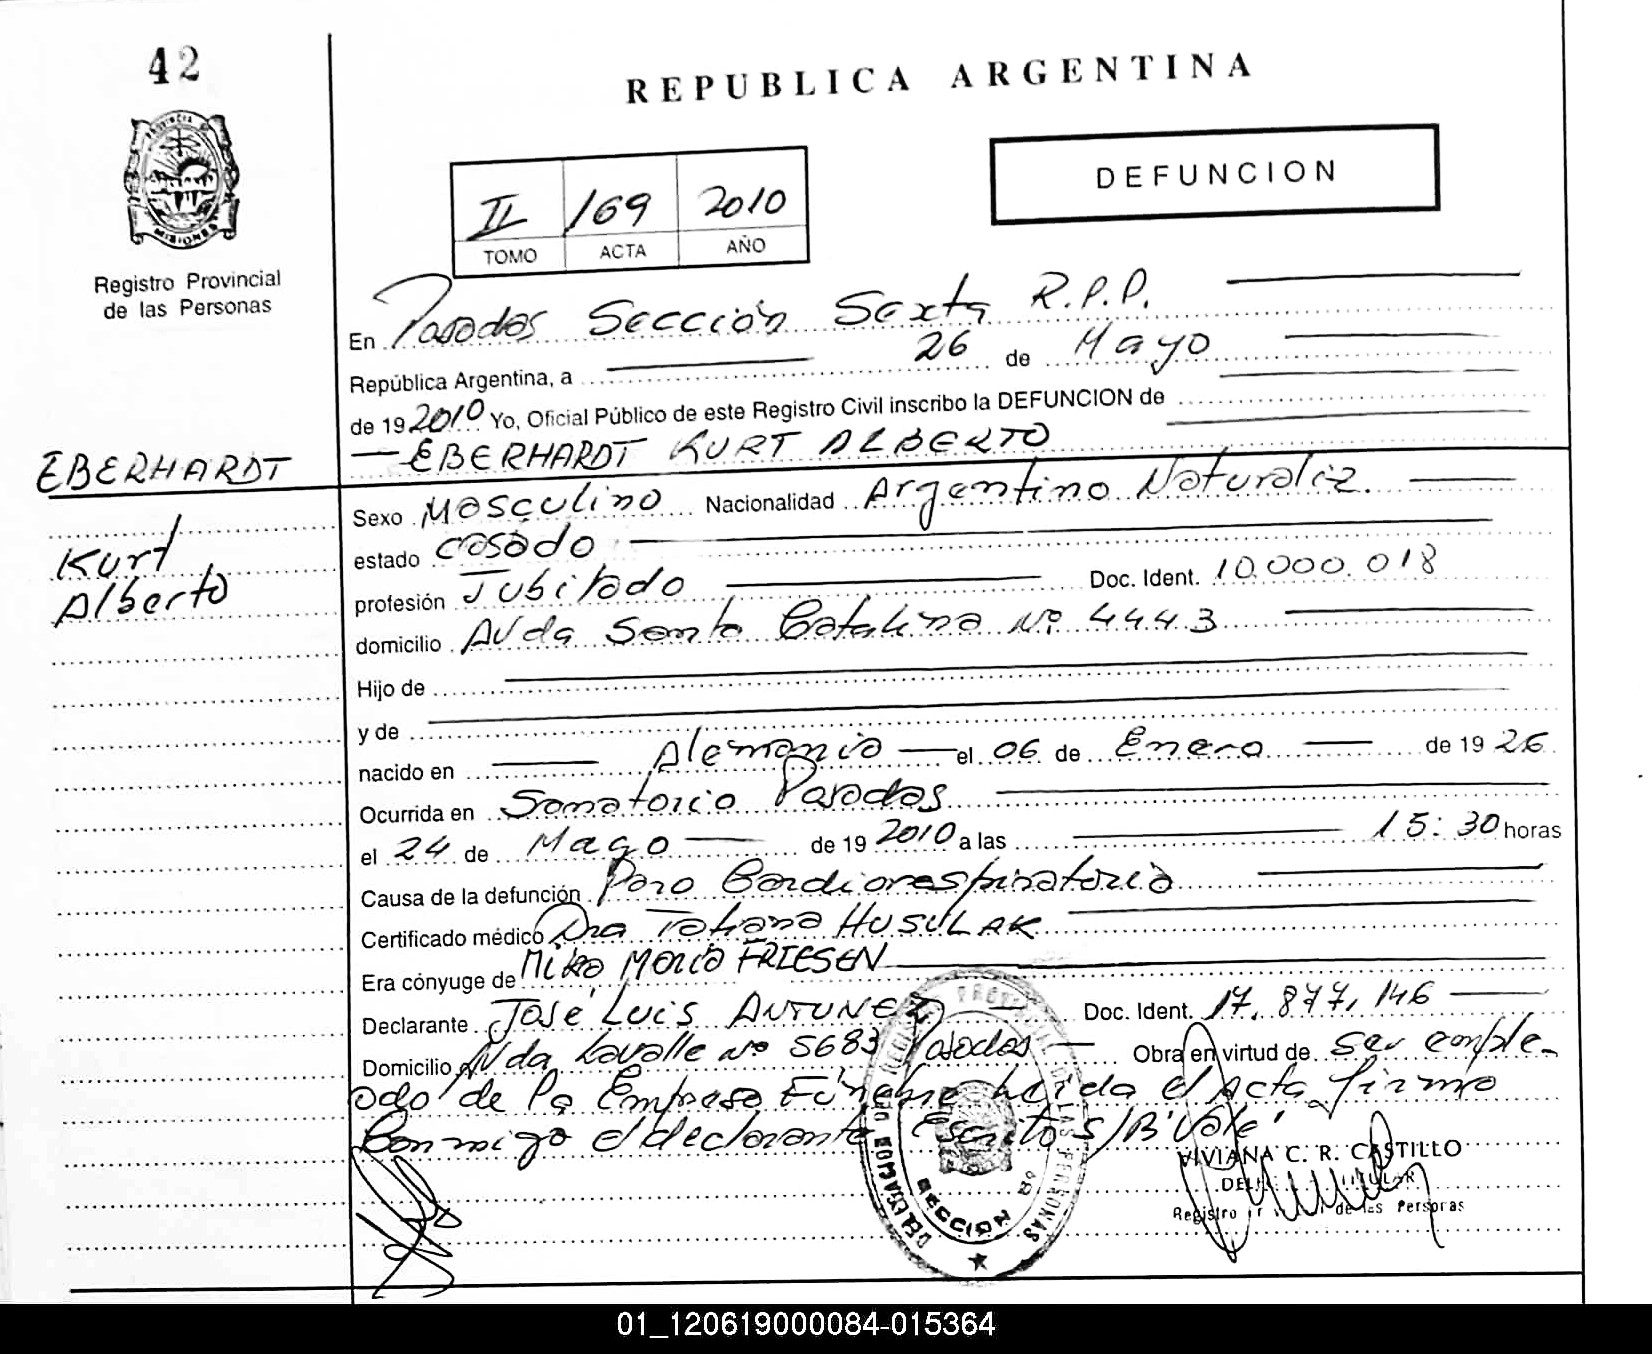 42
REPUBLICA ARGENTINA
PROVINCIA
MISIONES
Registro Provincial
de las Personas
II 169 2010
TOMO ACTA AÑO
DEFUNCION
En Posadas Sección Sexta R.P.P.
República Argentina, a 26 de Mayo
de 19 2010 Yo, Oficial Público de este Registro Civil inscribo la DEFUNCION de
EBERHARDT KURT ALBERTO
EBERHARDT
Kurt
Alberto
Sexo Masculino Nacionalidad Argentino Naturaliz.
estado casado
profesión Jubilado Doc. Ident. 10.000.018
domicilio AVda Santa Catalina Nº 4443
Hijo de
y de
nacido en Alemania el 06 de Enero de 19 26
Ocurrida en Sanatorio Posadas
el 24 de Mayo de 19 2010 a las 15:30 horas
Causa de la defunción Paro Cardiorespiratorio
Certificado médico Dra Tatiana HUSULAK
Era cónyuge de María FRIESEN
Declarante José Luis ANTUNEZ Doc. Ident. 17.877.146
Domicilio AVda Lavalle Nº 5683 Posadas Obra en virtud de ser emple-
ado de la Empresa Fúnebre leída el Acta firma
Conmigo el declarante Escrito S/B Vale
VIVIANA C. R. CASTILLO
Registro de las Personas
SECCION
01_120619000084-015364